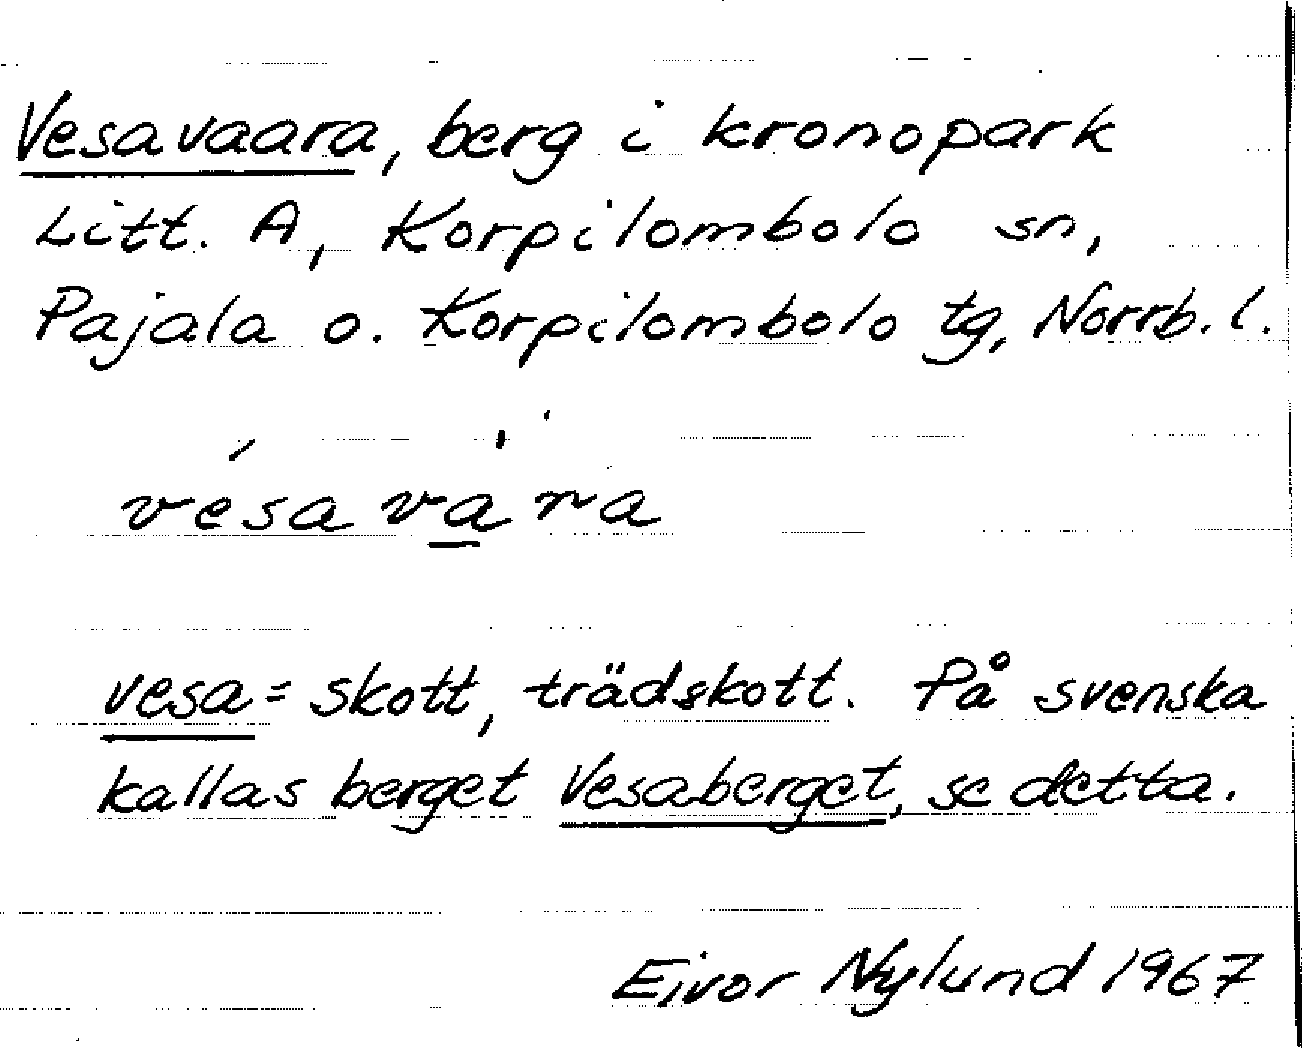 Vesavaara, berg i kronopark
Litt. A, Korpilombolo sn,
Pajala o. Korpilombolo tg, Norrb. l.
vesava̱ra
vesa = skott, trädskott. På svenska
kallas berget Vesaberget, se detta.
Eivor Nylund 1967